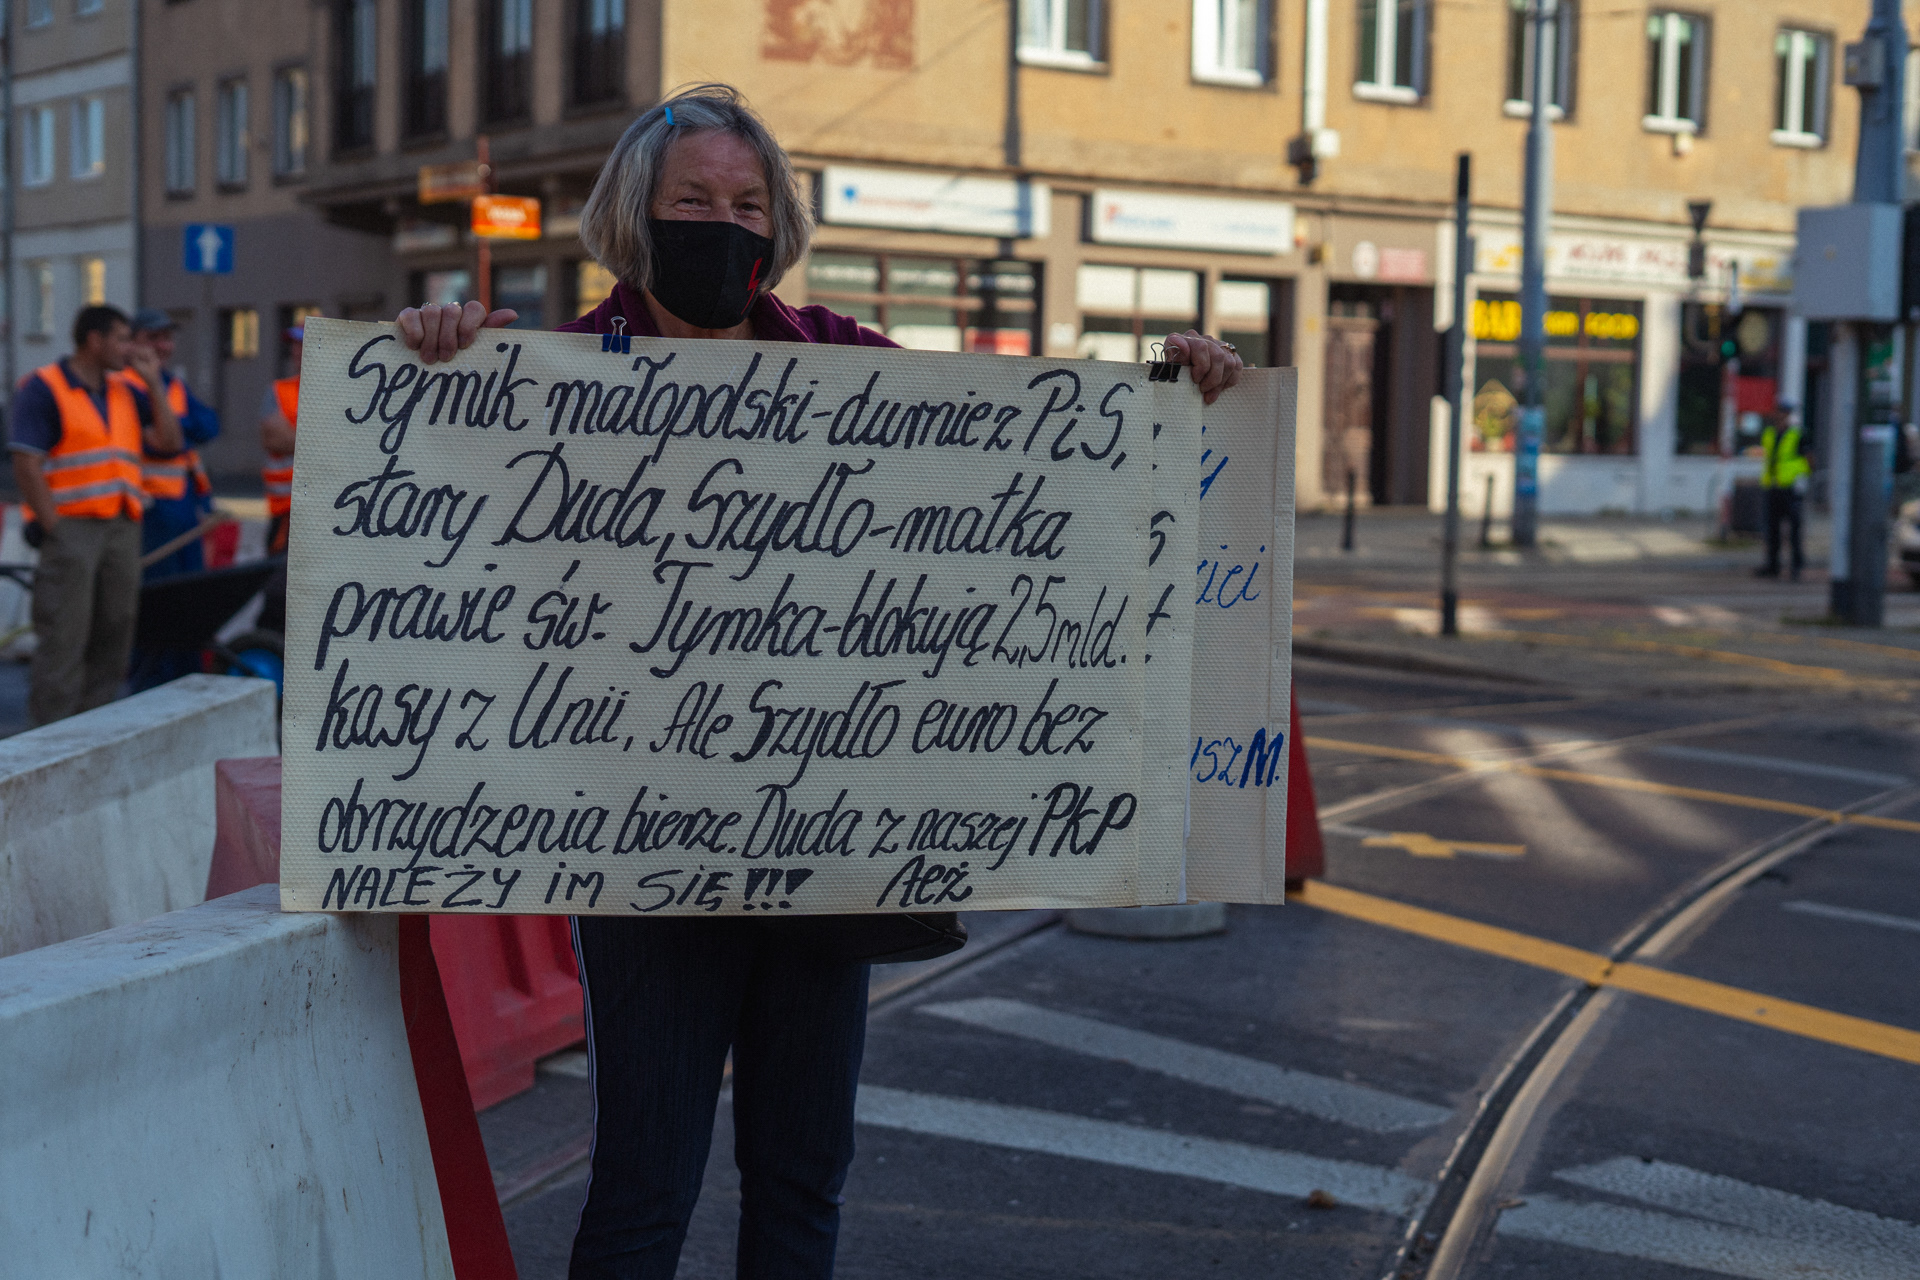 Sejmik małopolski-durnie z PiS,
stary Duda, Szydło-matka
prawie św. Tymka-blokują 2,5 mld.
kasy z Unii, Ale Szydło euro bez
obrzydzenia bierze. Duda z naszej PKP
NALEŻY IM SIĘ!!! AEŻ
M.